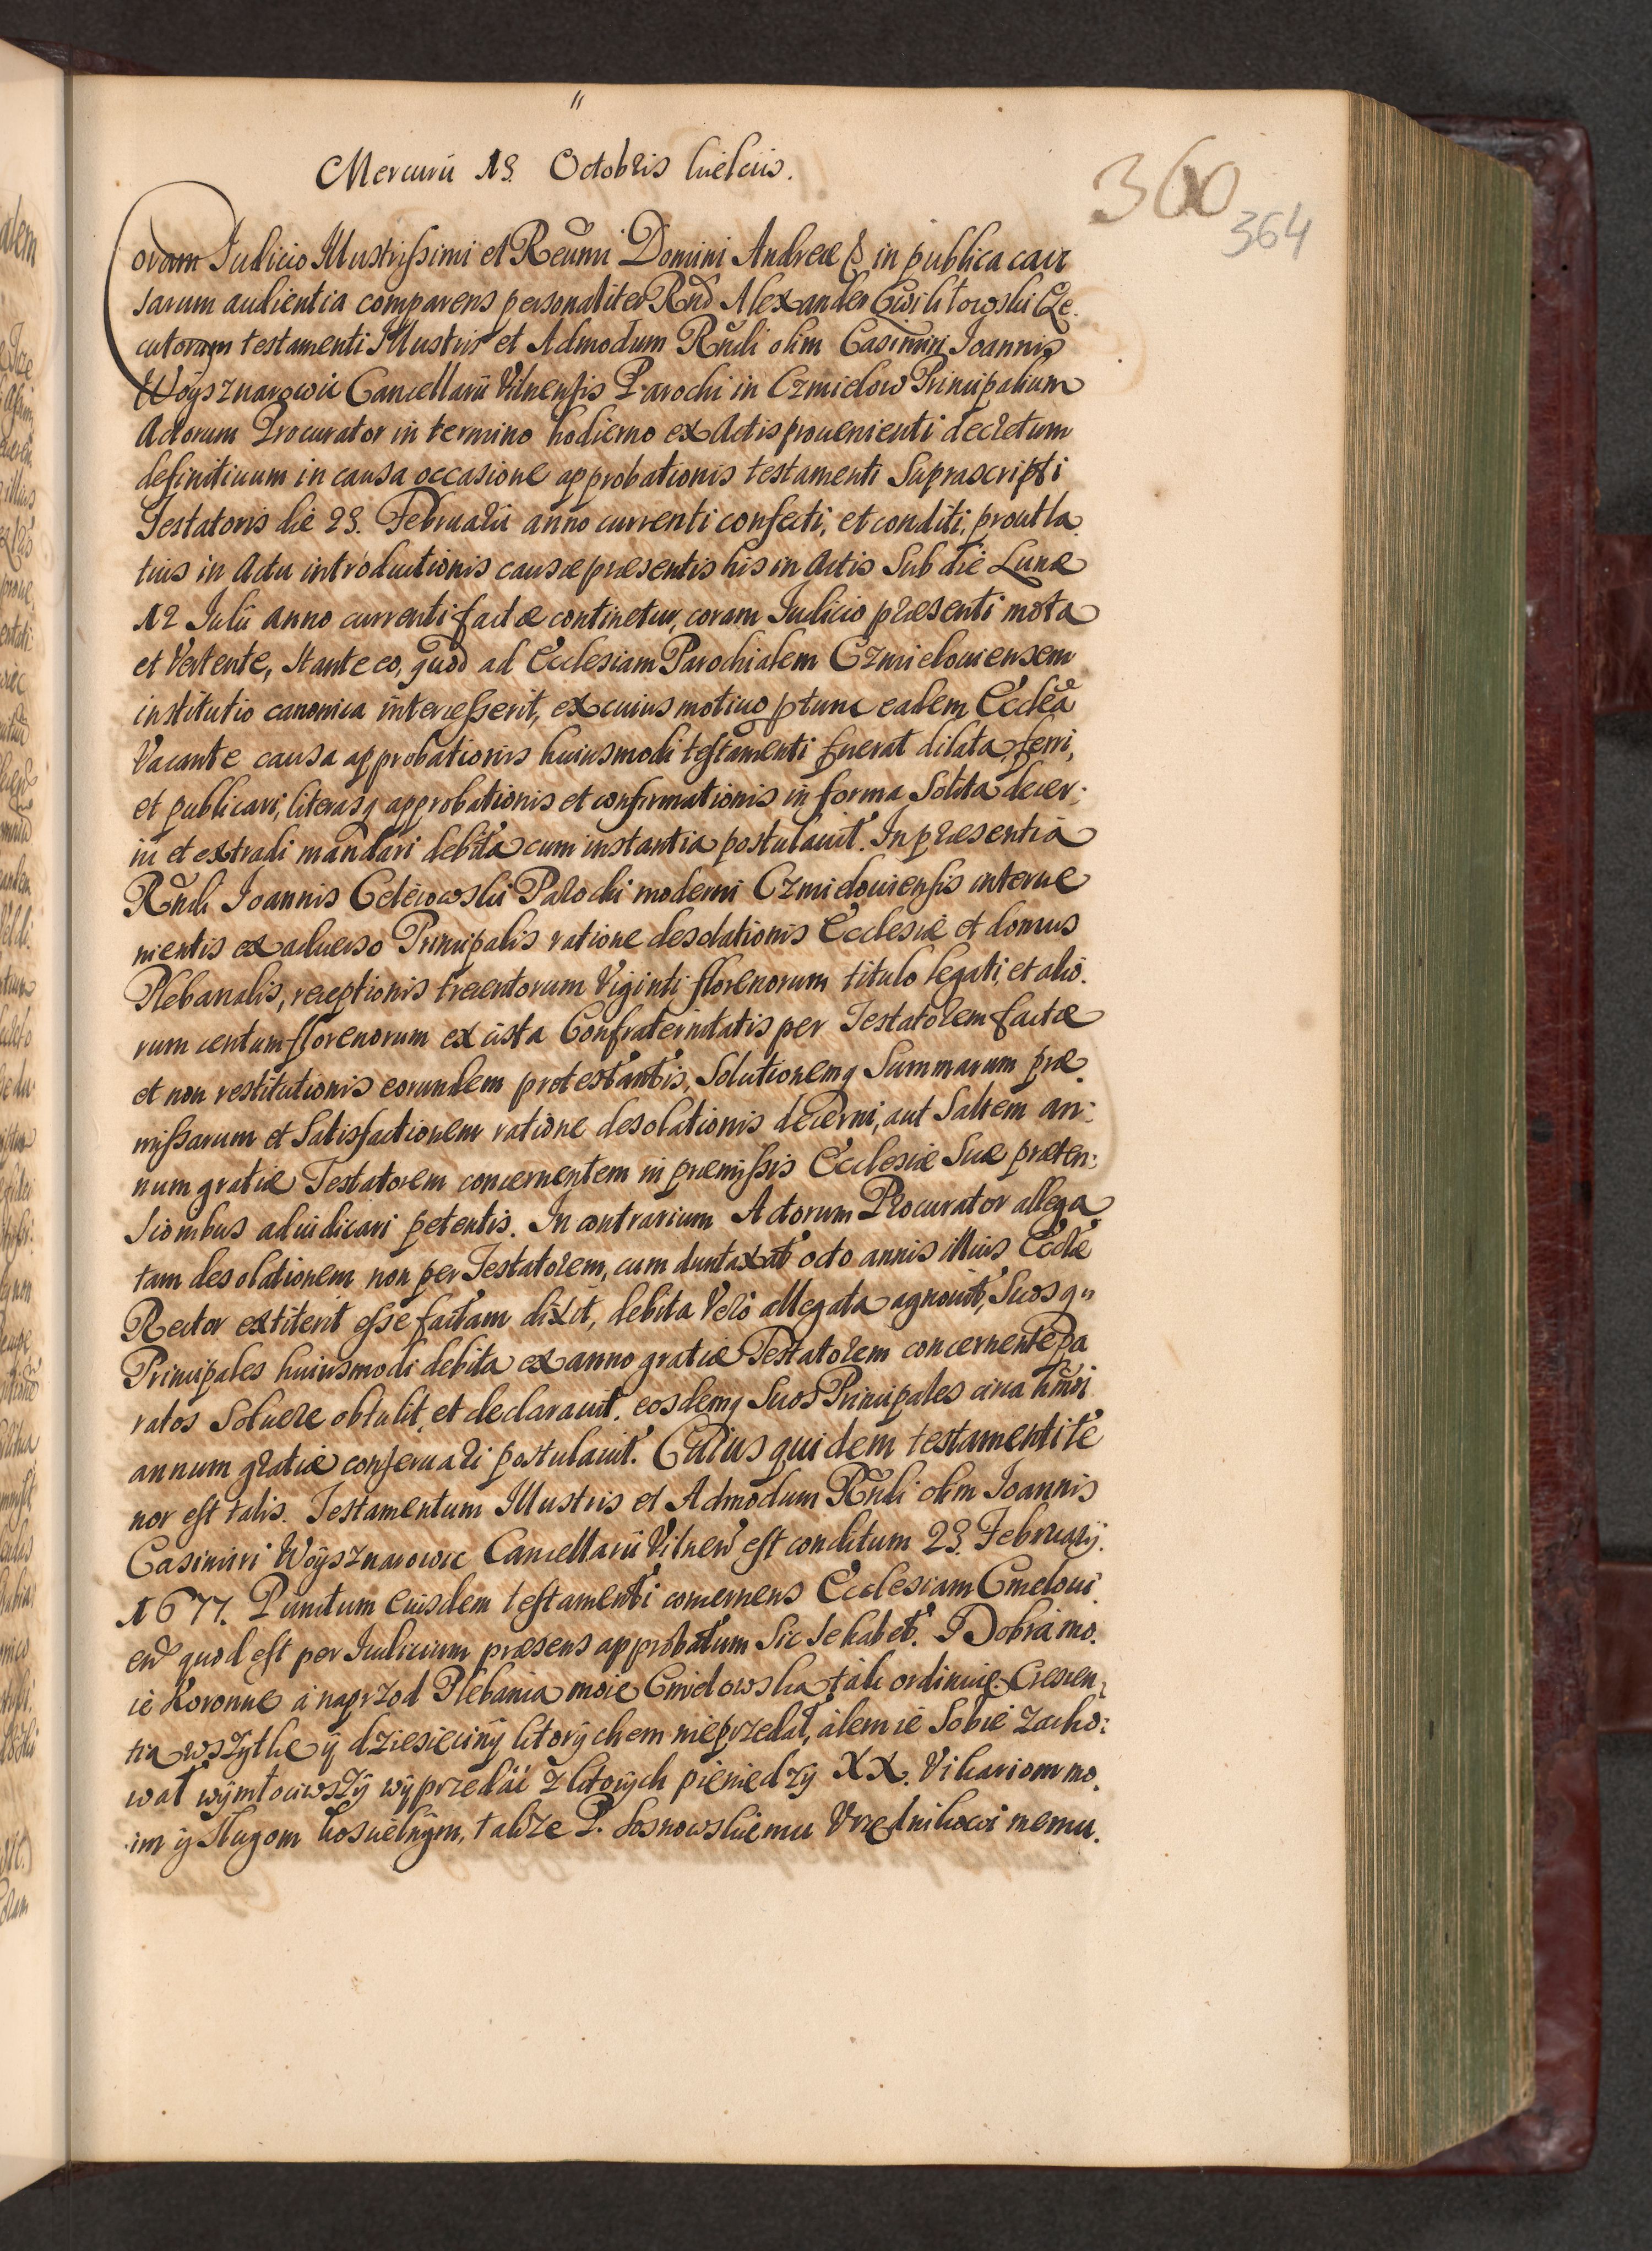 Mercurii 13. Octobris Kielciis.
360
364
Coram Iudicio Illustrissimi et Reũmi Domini Andreæ & in publica cau
sarum audientia comparens personaliter Rnđ Alexander Cwilitowski Exe
cutorum testamenti Illustris et Admodum Rñdi olim Casimiri Ioannis
Woysznarowic Cancellarii Vilnensis Parochi in Czmielow Principalium
Actorum Procurator in termino hodierno ex Actis prouenienti decretum
definitiuum in causa occasione approbationis testamenti Suprascripti
Testatoris die 23. Februarii anno currenti confecti, et conditi, prout la
tius in Actu introductionis causæ præsentis his in Actis Sub die Lunæ
12 Iulii anno currenti factæ continetur, coram Iudicio præsenti mota
et Vertente, stante eo, quod ad Ecclesiam Parochialem Czmielouiensem
institutio canonica intercesserit, ex cuius motiuo ptunc eadem Eccleã
Vacante causa approbationis huiusmodi testamenti fuerat dilata ferri,
et publicari, literasq approbationis et confirmationis in forma Solita decer:
ni et extradi mandari debita cum instantia postulauit. In præsentia
Rñdi Ioannis Gelewowski Parochi moderni Czmielouiensis interue
nientis ex aduerso Principalis ratione desolationis Ecclesiæ et domus
Plebanalis, receptionis trecentorum Viginti florenorum titulo legati, et alio.
rum centum florenorum ex cista Confraternitatis per Testatorem factæ
et non restitutionis eorundem protestantis, Solutionemq Summarum præ.
missarum et Satisfactionem ratione desolationis decerni, aut Saltem an:
num gratiæ Testatorem concernentem in præmissis Ecclesiæ Suæ præten:
sionibus adiudicari petentis. In contrarium Actorum Procurator allega
tam desolationem non per Testatorem, cum duntaxat octo annis illius Ecclæ
Rector extiterit esse factam dixit, debita Vero allegata agnouit, Suosq"
Principales huiusmodi debita ex anno gratiæ Testatorem concernente pa
ratos Soluere obtulit, et declarauit. eosdemq Suos Principales circa hm̃oi
annum gratiæ conseruari postulauit. Cuius quidem testamenti te
nor est talis. Testamentum Illustris et Admodum Rñdi olim Ioannis
Casimiri Woysznarowic Cancellarii Vilneñ est conditum 23. February.
1677. Punctum eiusdem testamenti concernens Ecclesiam Cmeloui.
eñ quod est per Iudicium præsens approbatum Sic Se habet. Dobra mo.
ie Koronne a naprzod Plebania moie Cmielowska tak ordinuie. Crescen:
tia wszytkie y dziesięciny ktorych em nieprzedał, alem ie Sobie zacho:
wał wymłociwszy wyprzedac z ktorych pieniedzy XX. Vikariom mo.
im y Sługom koscielnym, także P. Sosnowskiemu Vrzednikowi memu.